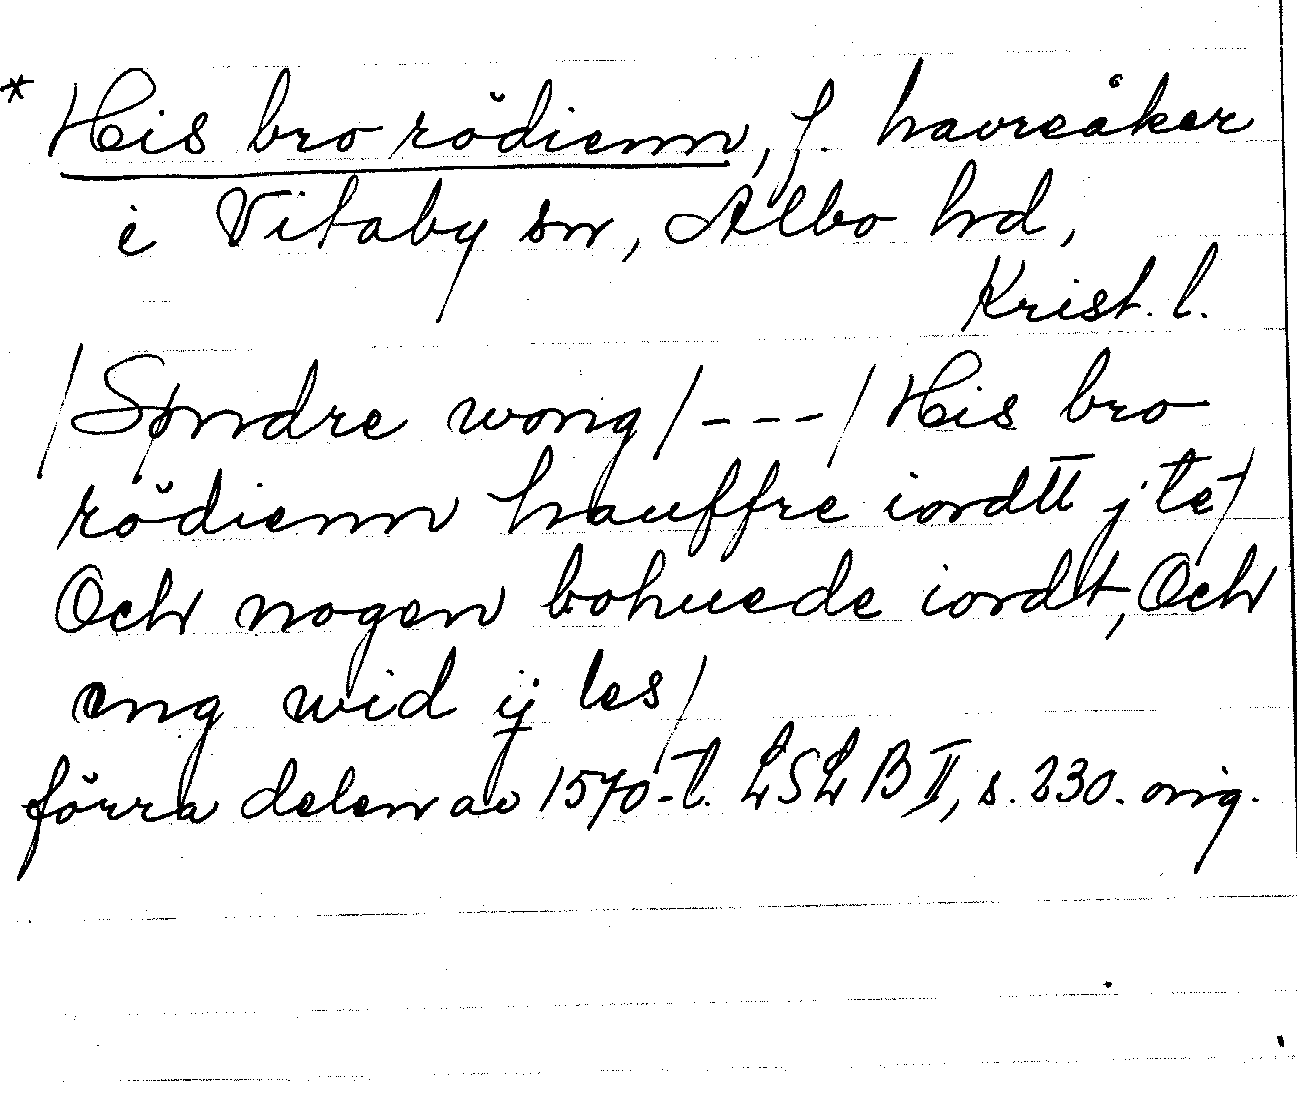 * His bro rödienn, f. havreåker
i Vitaby sn, Albo hd,
Krist. l.
/Søndre wong/---/His bro
rödienn hauffre iordtt j te/
Och nogen bohuede iordt, Och
eng wid ij les/
förra delen av 1570-t. LSL B II, s. 230. orig.